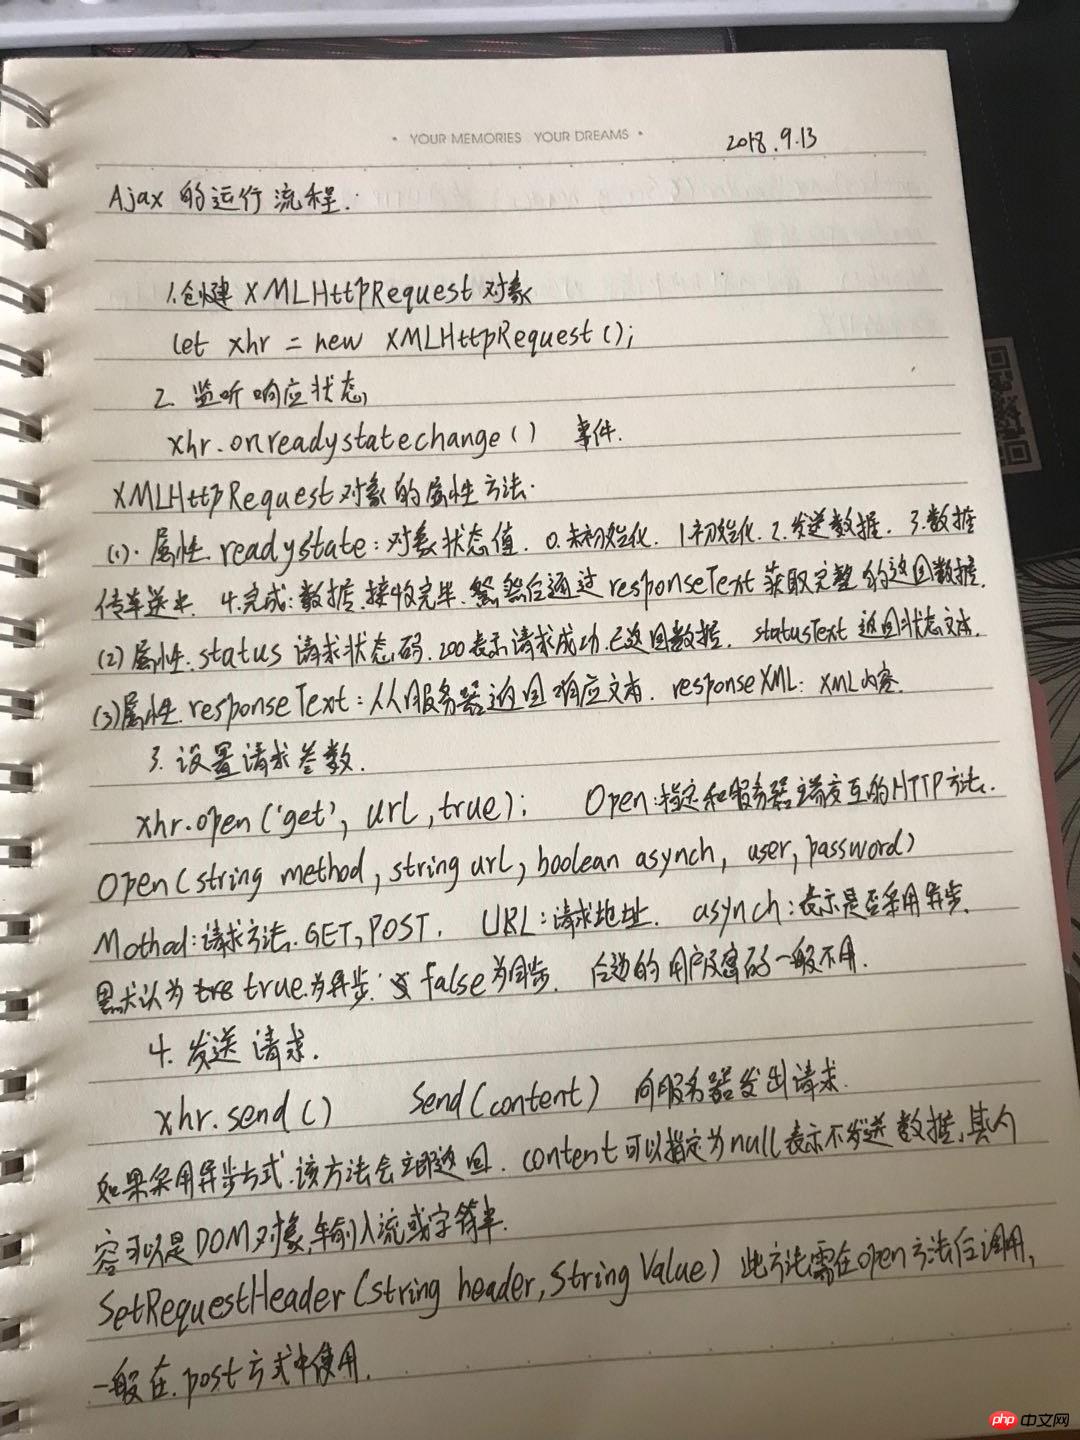 • YOUR MEMORIES YOUR DREAMS •
2018.9.13
Ajax 的运行流程.
1.创建 XMLHttpRequest 对象
let xhr = new XMLHttpRequest();
2. 监听响应状态,
xhr.onreadystatechange() 事件.
XMLHttpRequest 对象的属性方法.
(1). 属性. readystate: 对象状态值. 0.未初始化. 1.初始化. 2.发送数据. 3.数据
传送中. 4.完成: 数据接收完毕. 然后通过 responseText 获取完整的返回数据.
(2) 属性. status 请求状态码. 200表示请求成功.已返回数据. statusText 返回状态文本.
(3)属性. responseText: 从服务器返回响应文本. responseXML: XML内容.
3. 设置请求参数.
xhr.open('get', url, true); Open:指定和服务器端交互的HTTP方法.
Open(string method, string url, boolean asynch, user, password)
Mothod:请求方法. GET, POST. URL:请求地址. asynch:表示是否采用异步.
默认为 true.为异步. false为同步. 后边的用户及密码一般不用.
4. 发送请求.
xhr.send() Send(content) 向服务器发出请求.
如果采用异步方式.该方法会立即返回. content可以指定为null表示不发送数据,其内
容可以是DOM对象,输入流或字符串.
SetRequestHeader(String header, String Value) 此方法需在open方法后调用,
一般在.post方式中使用.
php 中文网